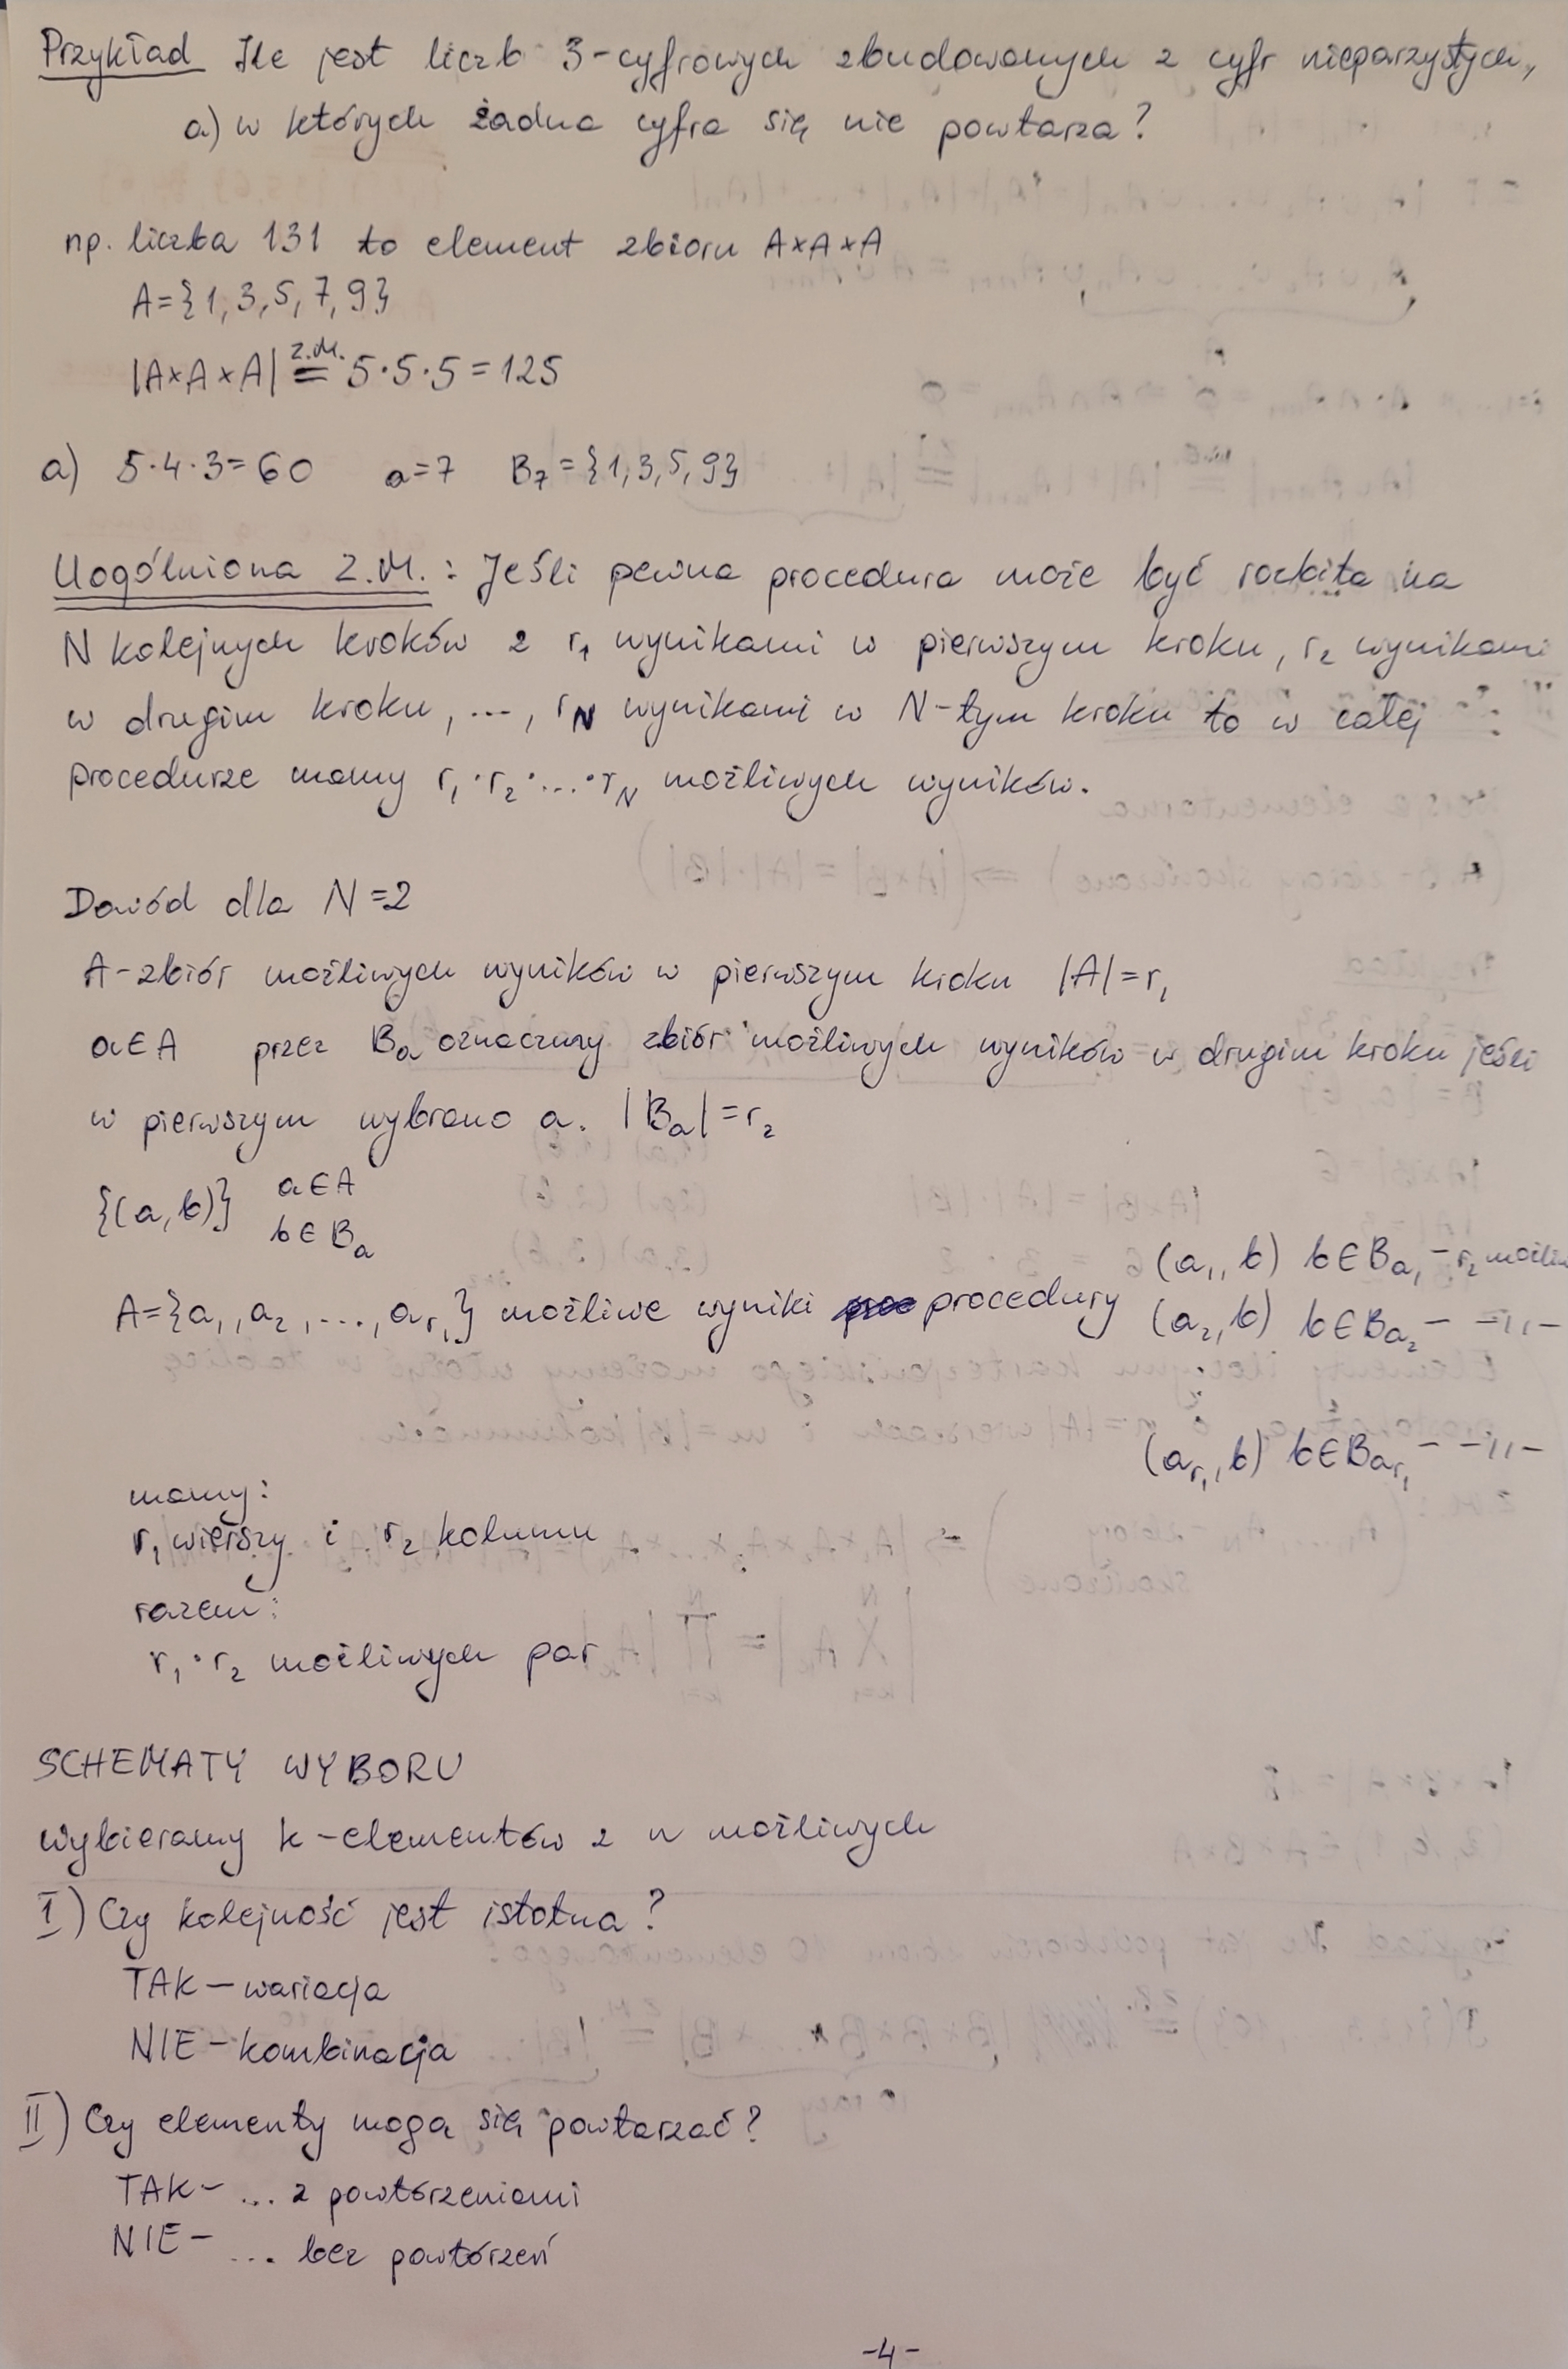 Przykład Ile jest liczb 3-cyfrowych zbudowanych z cyfr nieparzystych,
a) w których żadna cyfra się nie powtarza?
np. liczba 131 to element zbioru A×A×A
A={1,3,5,7,9}
|A×A×A| z.M.= 5·5·5=125
a) 5·4·3=60 a=7 B₇={1,3,5,9}
Uogólniona Z.M.: Jeśli pewna procedura może być rozbita na
N kolejnych kroków z r₁ wynikami w pierwszym kroku, r₂ wynikami
w drugim kroku, ..., r_N wynikami w N-tym kroku to w całej
procedurze mamy r₁·r₂·...·r_N możliwych wyników.
Dowód dla N=2
A-zbiór możliwych wyników w pierwszym kroku |A|=r₁
a∈A przez Bₐ oznaczmy zbiór możliwych wyników w drugim kroku jeśli
w pierwszym wybrano a. |Bₐ|=r₂
{(a,b)} a∈A
b∈Bₐ
(a₁,b) b∈B_a₁ - r₂ możliw
A={a₁,a₂,...,a_r₁} możliwe wyniki procedury (a₂,b) b∈B_a₂ - -11-
(a_r₁,b) b∈B_a_r₁ - -11-
mamy:
r₁ wierszy i r₂ kolumn
razem:
r₁·r₂ możliwych par
SCHEMATY WYBORU
wybieramy k-elementów z n możliwych
I) Czy kolejność jest istotna?
TAK - wariacja
NIE - kombinacja
II) Czy elementy mogą się powtarzać?
TAK - ... z powtórzeniami
NIE - ... bez powtórzeń
-4-